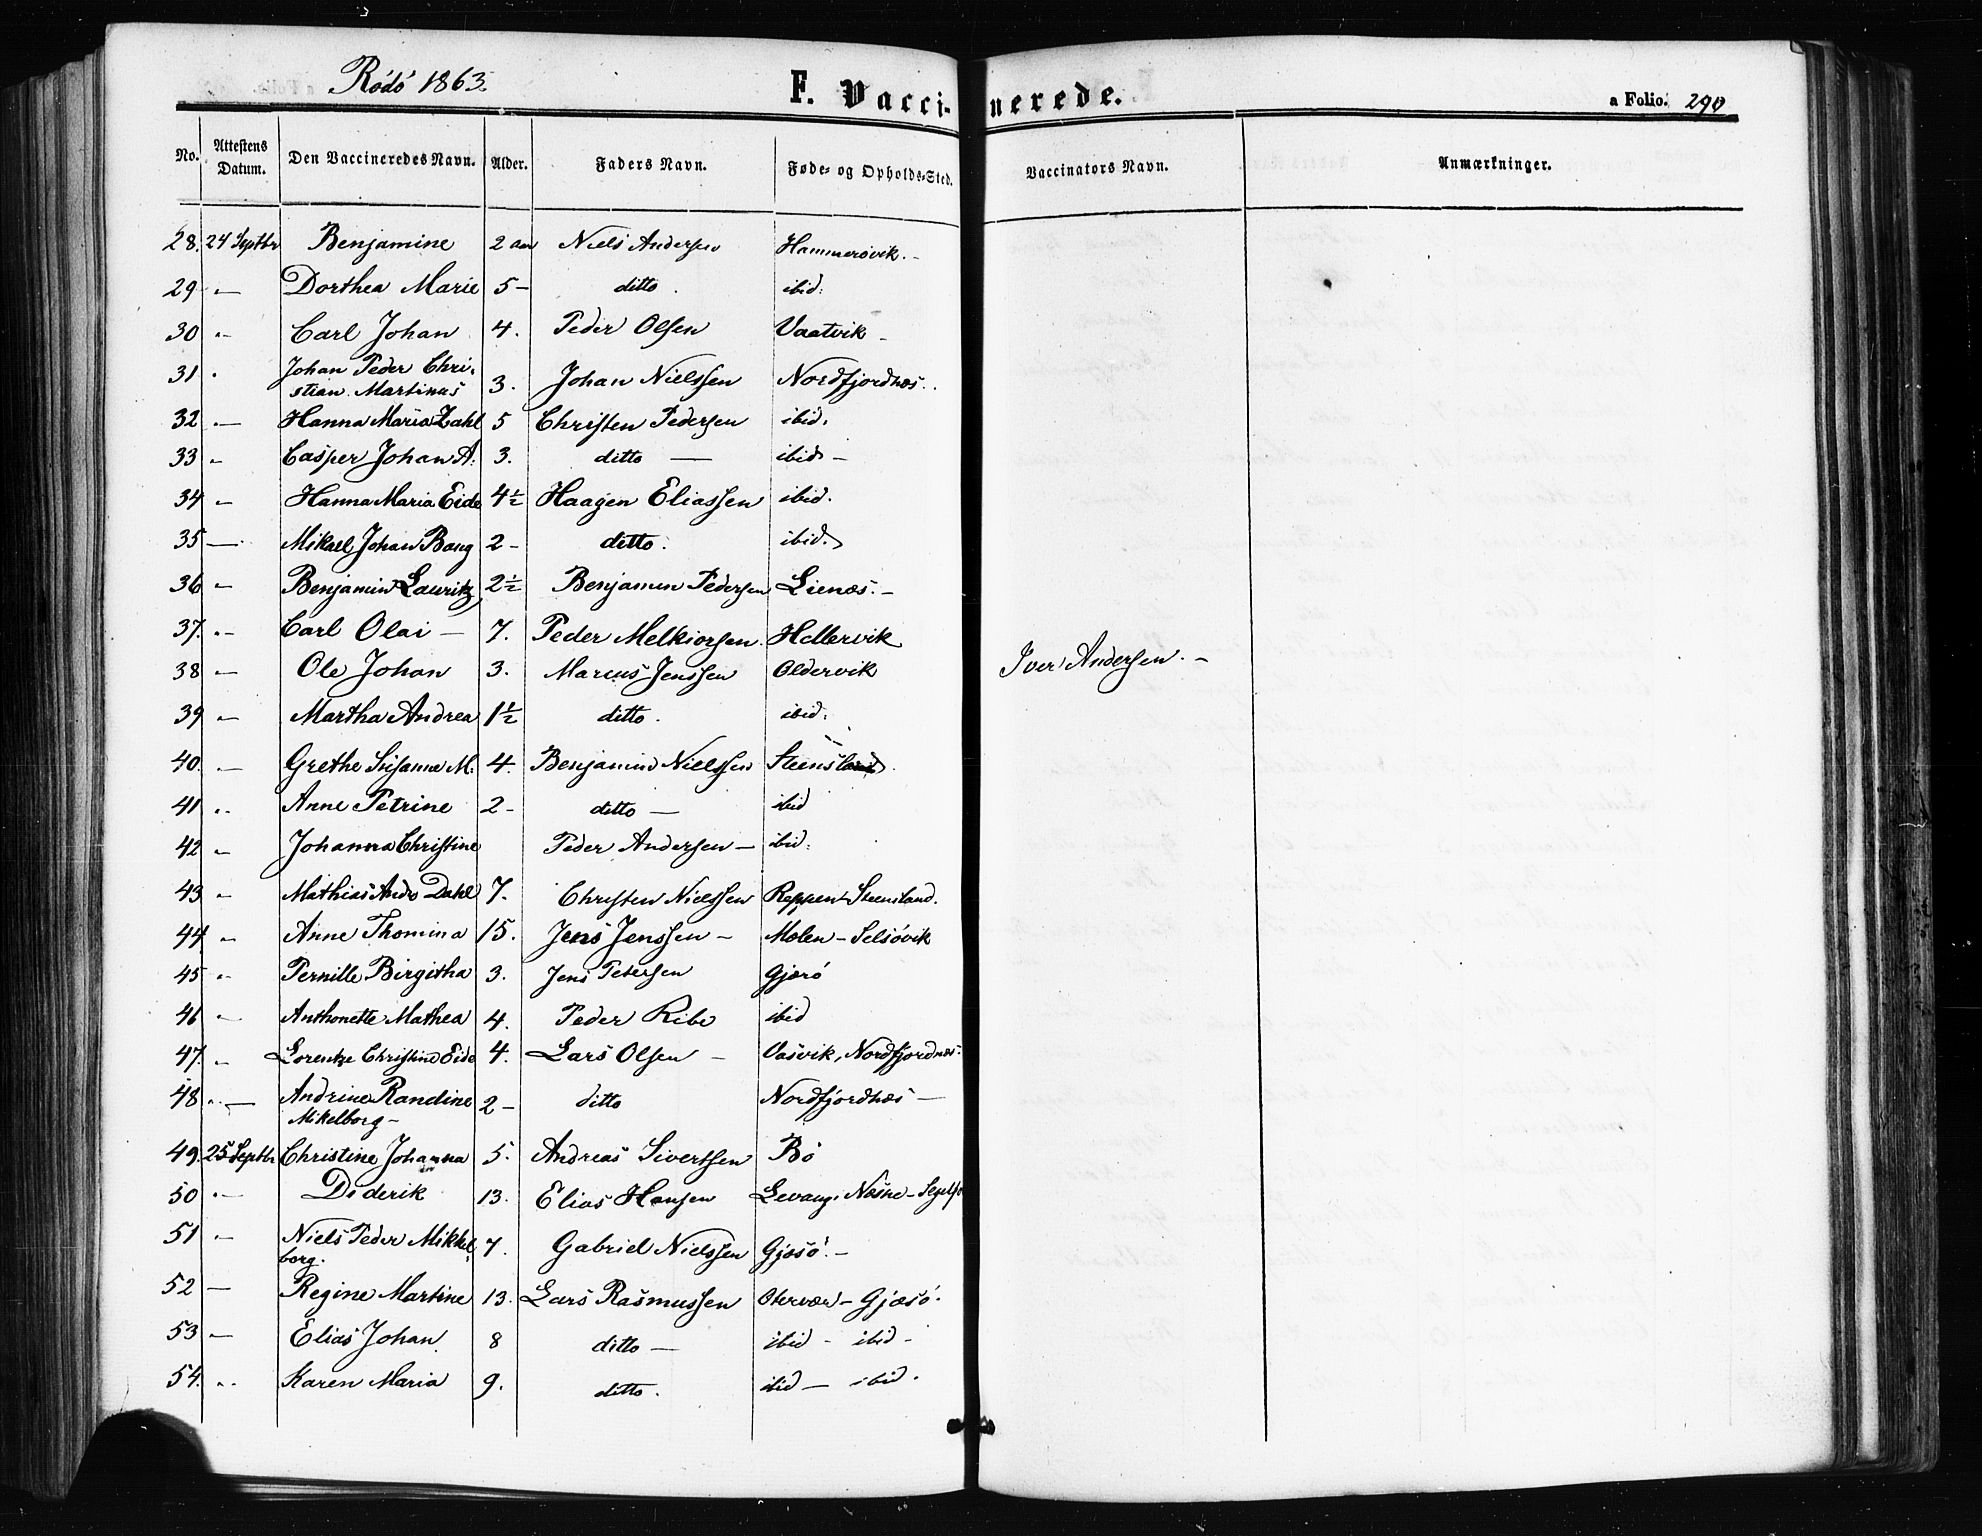 Rödö 1863.
F. Vaccinerede.
a Folio. 290
No. Attestens Datum. Den Vaccineredes Navn. Alder. Faders Navn. Føde- og Opholds-Sted. Vaccinators Navn. Anmærkninger.
28. 24 Septbr Benjamine 2 aar Niels Andersen Hammersvik. -
29 - Dorthea Marie 5 - ditto. ibid:
30 - Carl Johan 4. Peder Olsen Vaatvik -
31 - Johan Peder Chri-
stian Martinus 3. Johan Nielssen Nordfjordnæs.
32 - Hanna Maria Zahl 5 Christen Pedersen ibid.
33 - Casper Johan A. 3. ditto — ibid -
34 - Hanna Maria Eide 4½ Haagen Eliassen ibid.
35 - Mikael Johan Bang 2 - ditto. ibid.
36 - Benjamin Lauritz 2½ Benjamin Pedersen Lienæs. -
37. - Carl Olai — 7. Peder Melkiorsen Hellervik
38 - Ole Johan 3. Marcus Jenssen Oldervik Iver Andersen. -
39 - Martha Andrea 1½ ditto. ibid.
40. - Grethe Susanna M. 4. Benjamin Nielssen Steensland.
41 - Anne Petrine 2 - ditto — ibid
42 - Johanna Christine Peder Andersen — ibid.
43 - Mathias Andr. Dahl 7. Christen Nielssen Reppen Steensland.
44 - Anne Thomina 15. Jens Jenssen - Molen - Selsövik
45 - Pernille Birgitha 3. Jens Petersen Gjerö
46 - Anthonette Mathea 4. Peder Ribe ibid
47. - Lorentze Christine Eide 4. Lars Olsen - Vasvik, Nordfjordnæs.
48 - Andrine Randine
Mikelborg - 2 - ditto Nordfjordnæs —
49. 25 Septbr Christine Johanna 5. Andreas Sivertsen Bö
50 - Diderik 13. Elias Hansen Levang, Næsne - Segelfo
51 - Niels Peder Mikkel-
borg. 7. Gabriel Nielssen Gjæsö. -
52 - Regine Martine 13. Lars Rasmussen Otervær - Gjæsö.
53 - Elias Johan 8 ditto — ibid - ibid -
54. - Karen Maria 9. ditto. ibid - ibid.